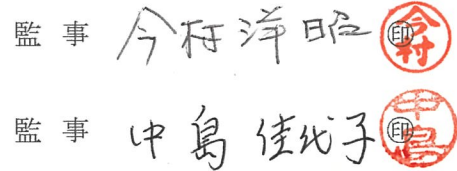 監 事 今村洋昭 ㊞ 今村
監 事 中島佳代子 ㊞ 中島